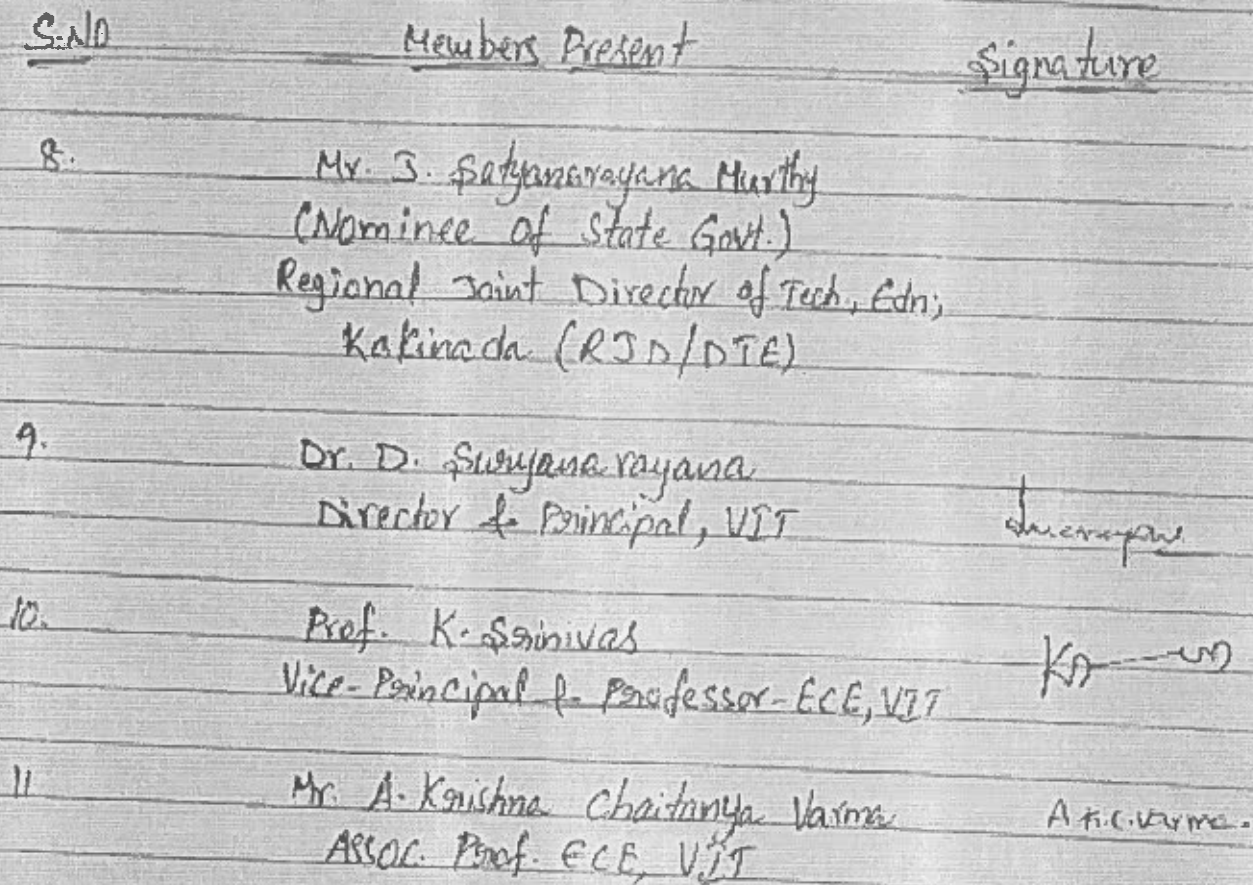 S.NO Members Present Signature
8. Mr. J. Satyanarayana Murthy
(Nominee of State Govt.)
Regional Joint Director of Tech, Edn;
Kakinada (RJD/DTE)
9. Dr. D. Suryanarayana
Director & Principal, VIT
10. Prof. K. Srinivas
Vice-Principal & Professor-ECE, VIT
11 Mr. A. Krishna Chaitanya Varma A K.C. Varma.
Assoc. Prof. ECE, VIT